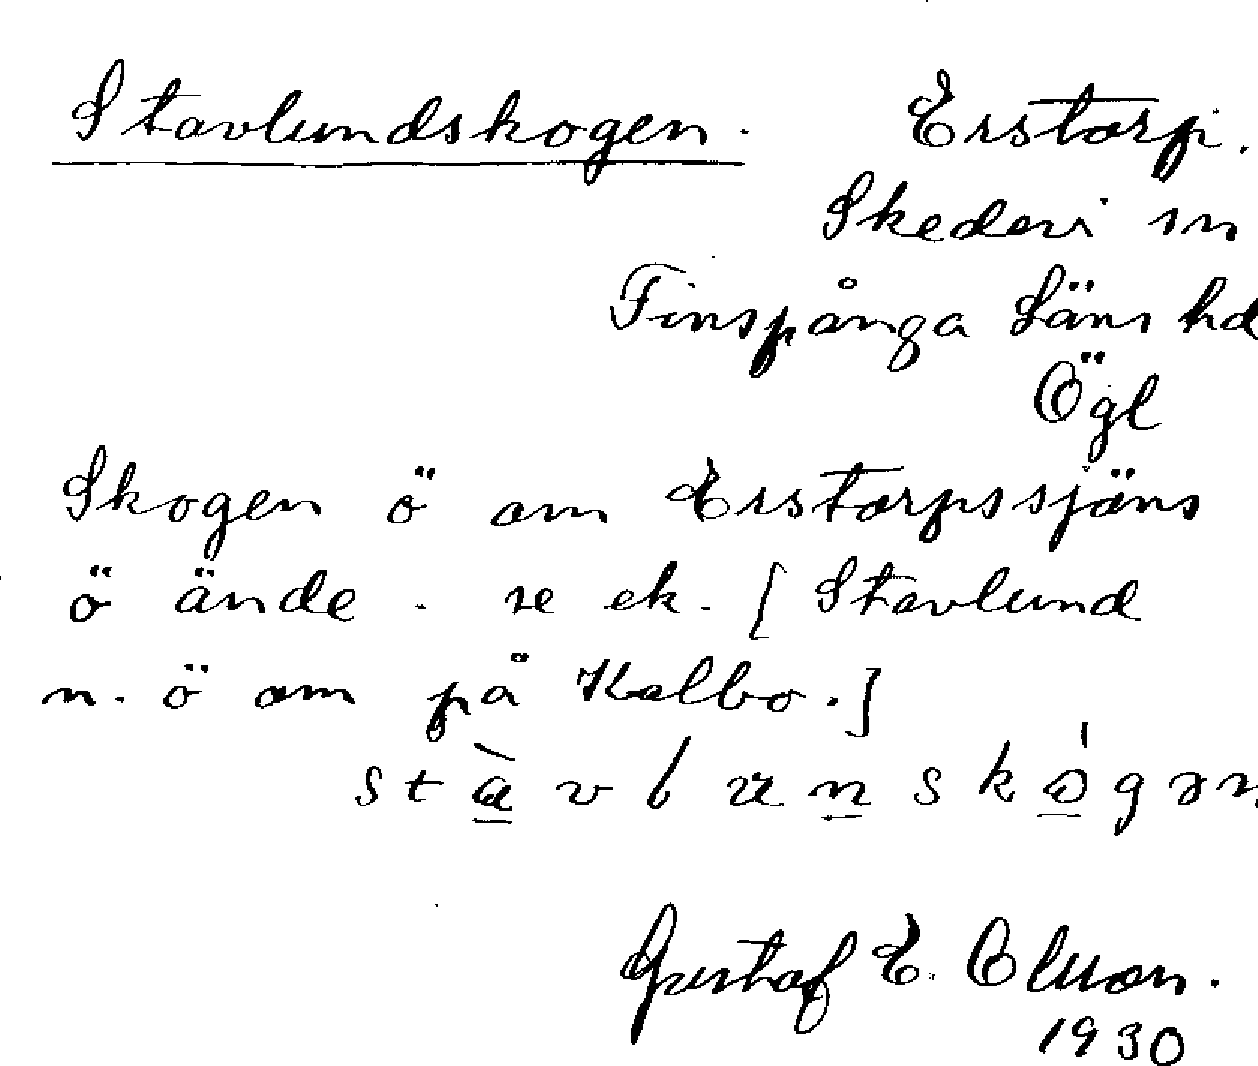 Stavlundskogen. Erstorp.
Skedevi sn
Finspånga Läns hd
Ögl
Skogen ö om Erstorpssjöns
ö ände. se ek. [Stavlund
n. ö om på Kalbo.]
stàvlunskógən
Gustaf E. Olsson.
1930